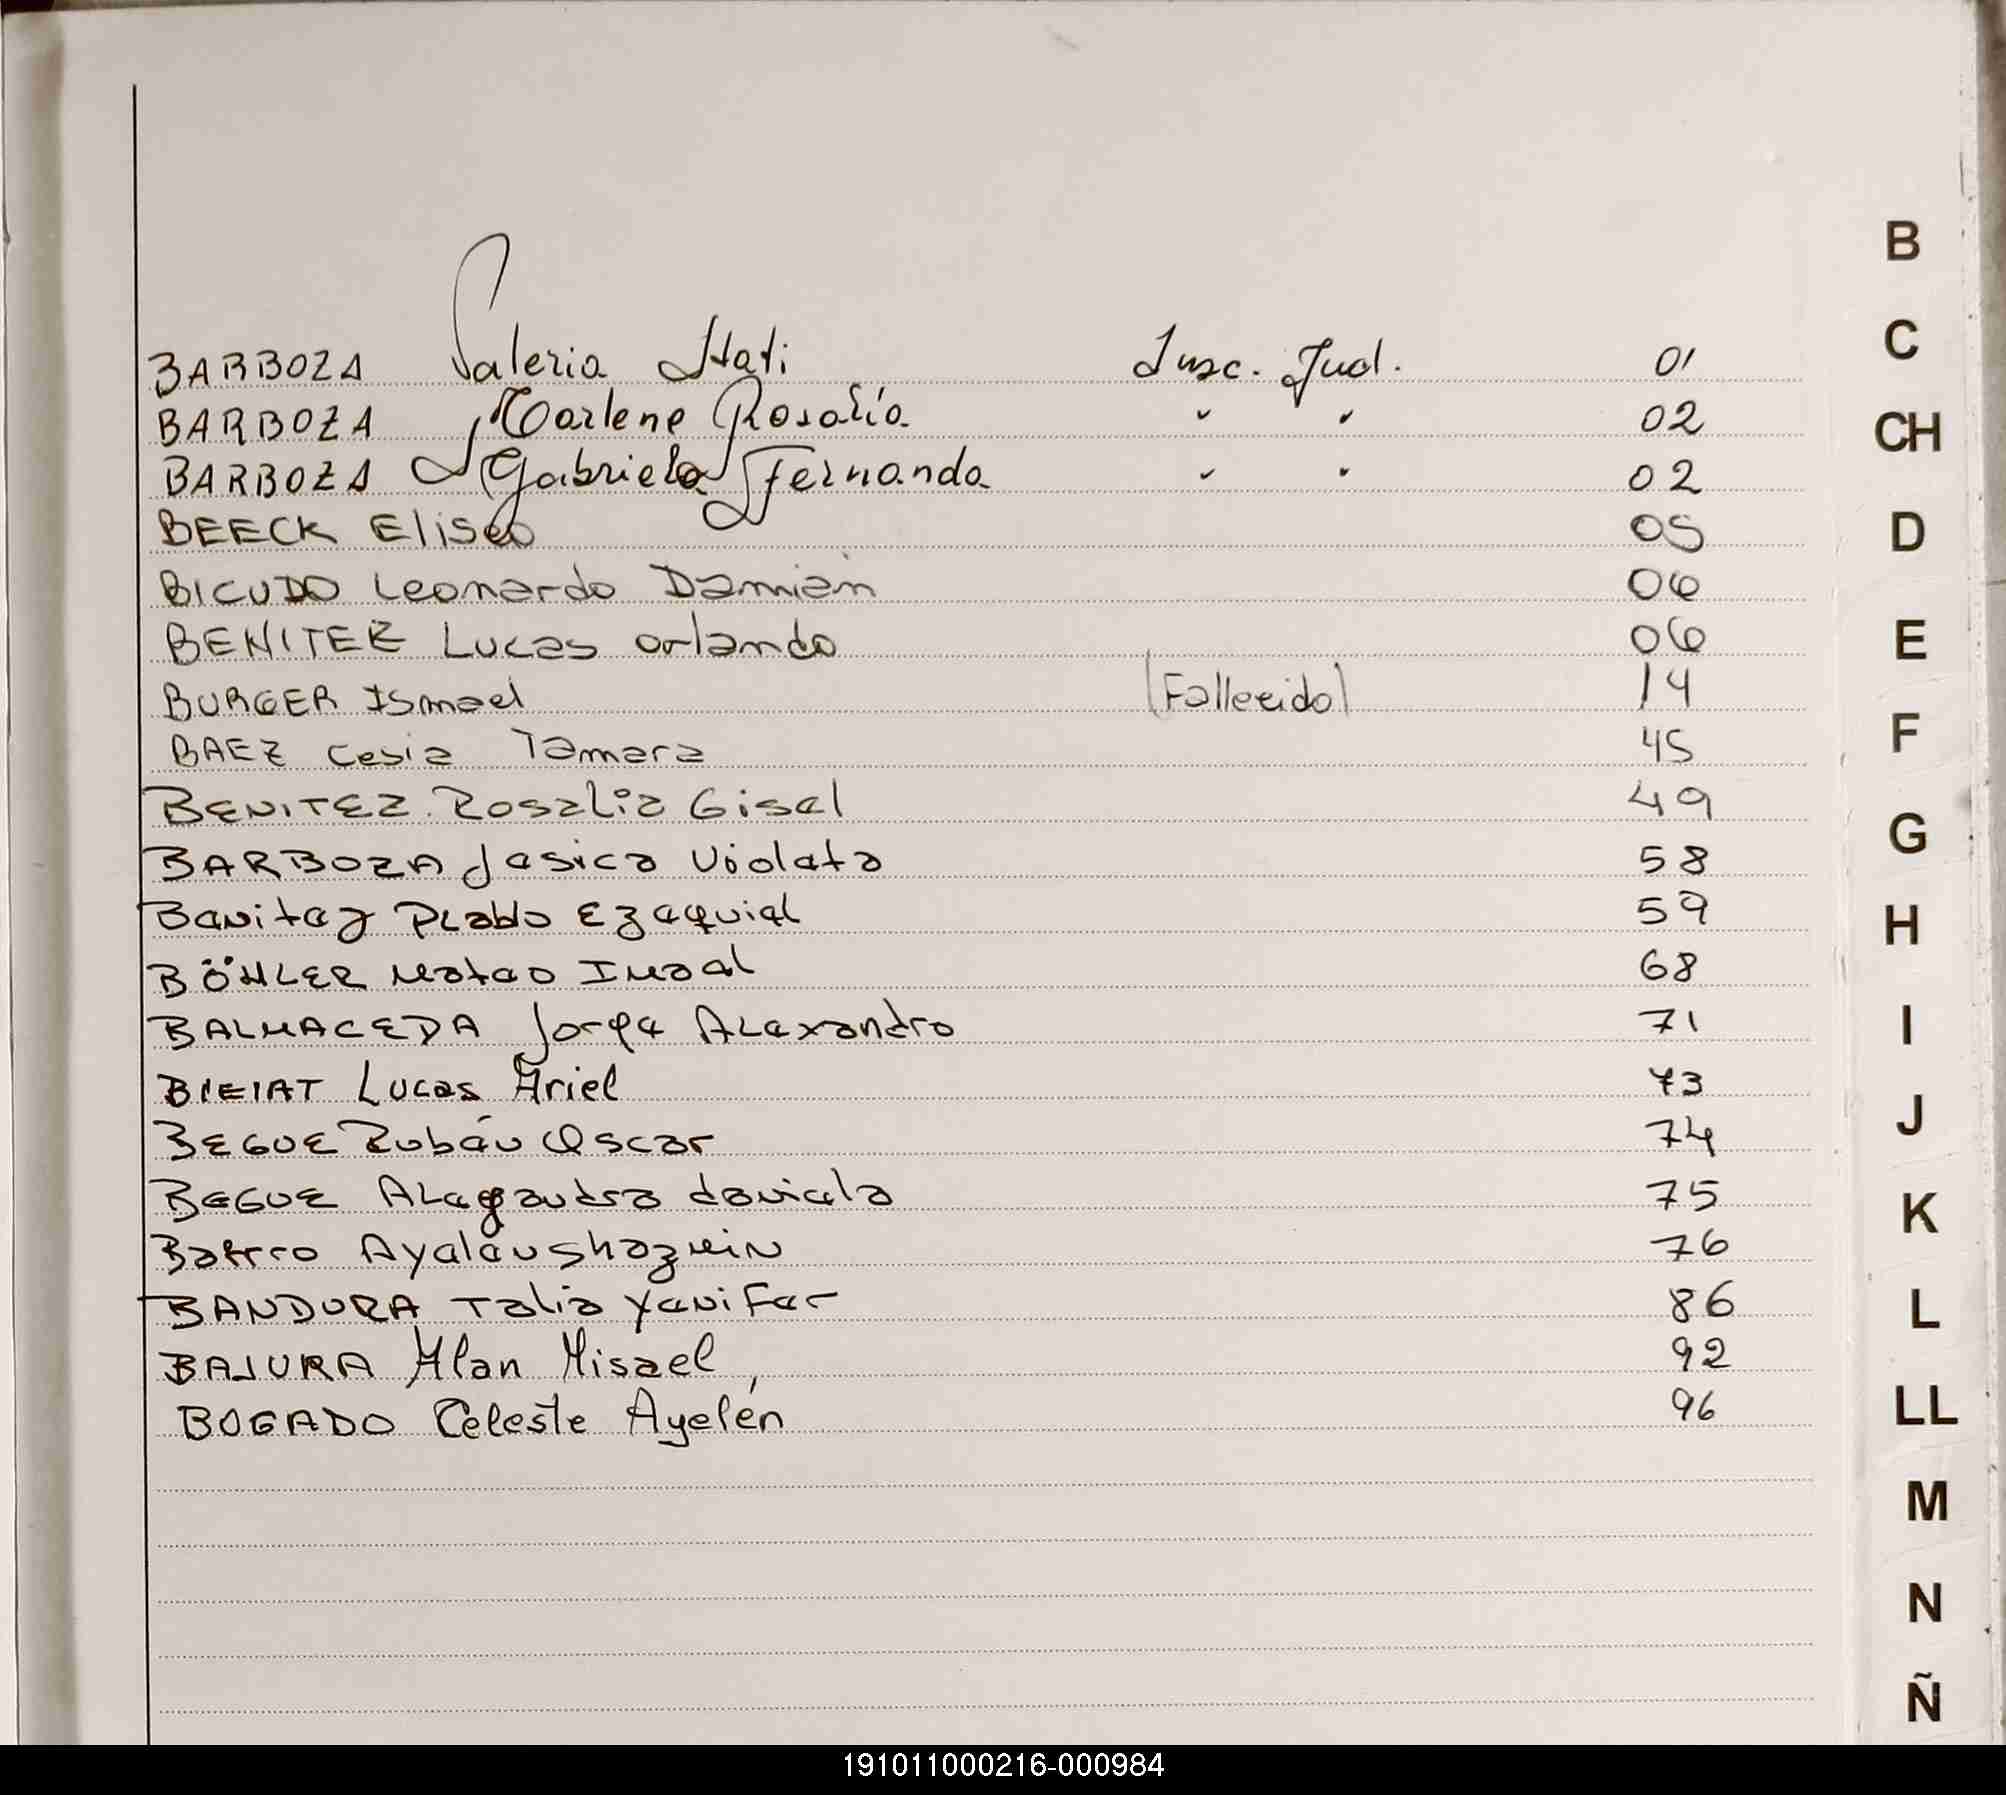 BARBOZA Valeria Itati Insc. Jud. 01
BARBOZA Marlene Rosalía " " 02
BARBOZA Gabriela Fernanda " " 02
BEECK Eliseo 05
BICUDO Leonardo Damian 06
BENITEZ Lucas Orlando 06
BURGER Ismael (Fallecido) 14
BAEZ Cesia Tamara 45
BENITEZ Rosalia Gisel 49
BARBOZA Jesica Violeta 58
Benitez Pablo Ezequiel 59
BÖHLER Mateo Imael 68
BALMACEDA Jorge Alexandro 71
BIEIAT Lucas Ariel 73
BEGUE Rubén Oscar 74
BEGUE Alejandra daniela 75
Barrro 76
BANDURA Talia Yenifer 86
BAJURA Alan Misael 92
BOGADO Celeste Ayelén 96
B
C
CH
D
E
F
G
H
I
J
K
L
LL
M
N
Ñ
191011000216-000984